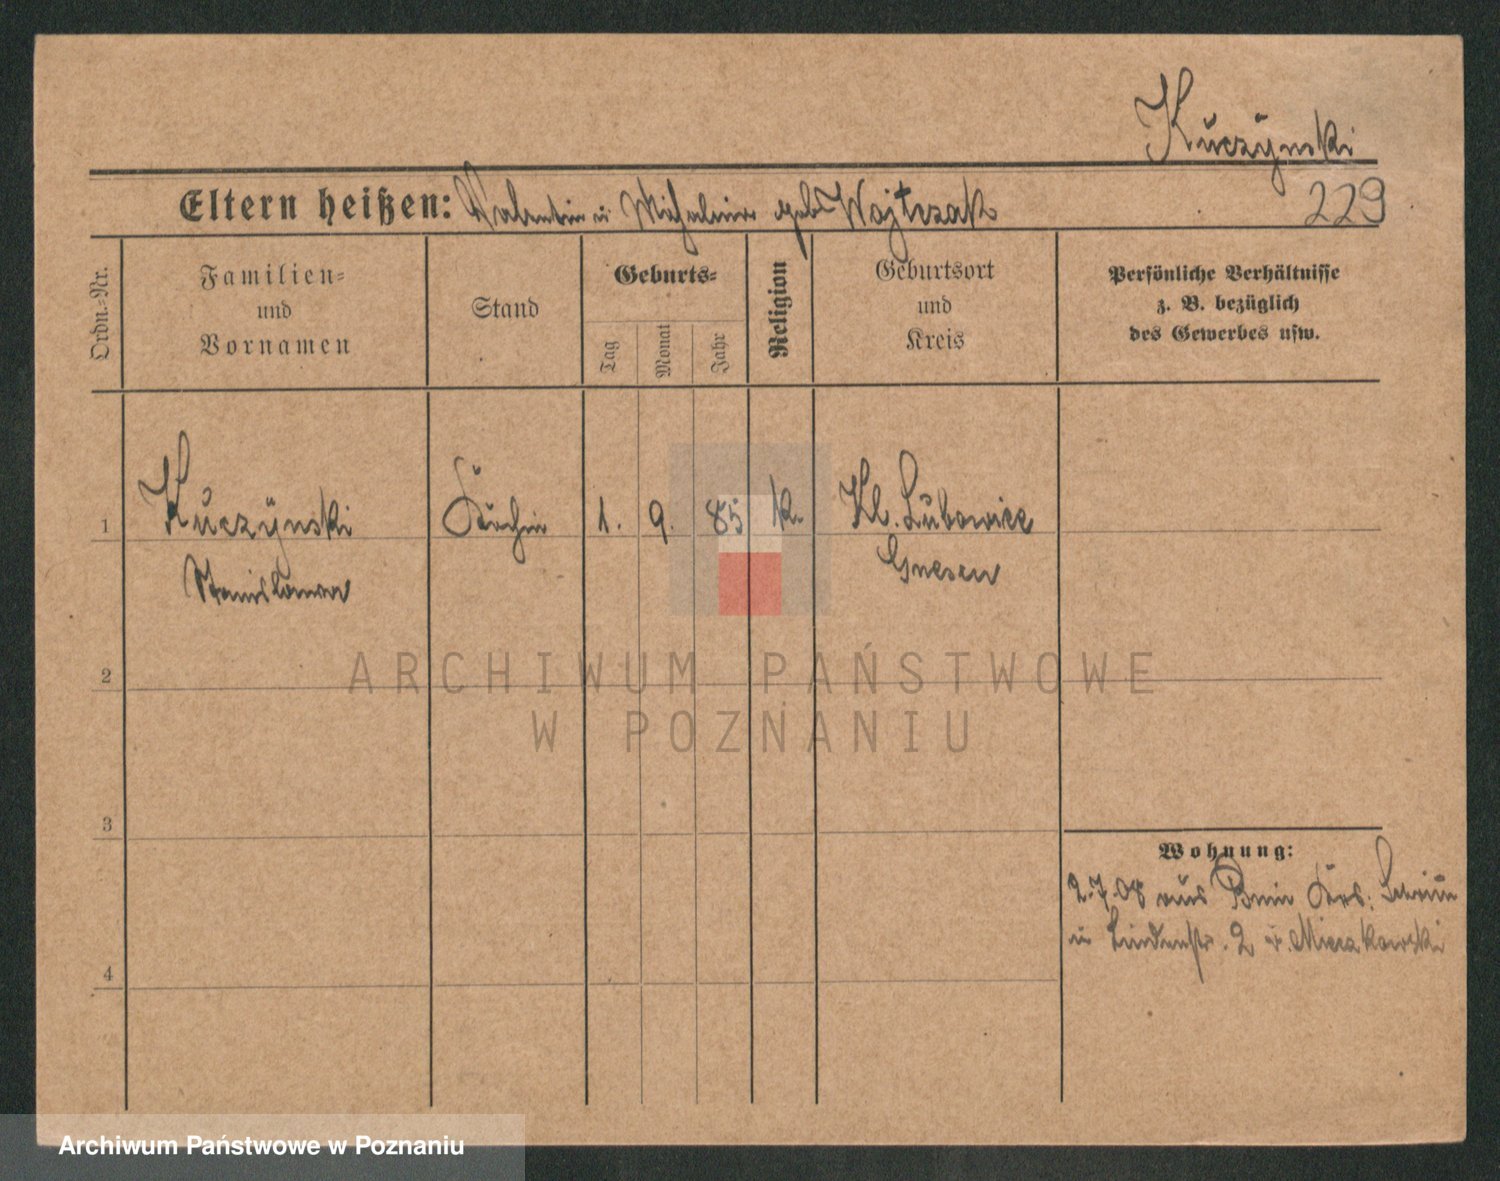 Kuczynski
Eltern heißen: Valentin u Michalina geb Wojtczak
229
Ordn.-Nr.
Familien-
und
Vornamen
Stand
Geburts-
Tag
Monat
Jahr
Religion
Geburtsort
und
Kreis
Persönliche Verhältnisse
z. B. bezüglich
des Gewerbes usw.
1 Kuczynski Köchin 1. 9. 85 k. Kl. Lubowice
Stanislawa Gnesen
2
3
4
ARCHIWUM PAŃSTWOWE
W POZNANIU
Wohnung:
2.7.08 aus Bnin Krs. Schrim
Lindenstr. 2 Mieczkowski
Archiwum Państwowe w Poznaniu